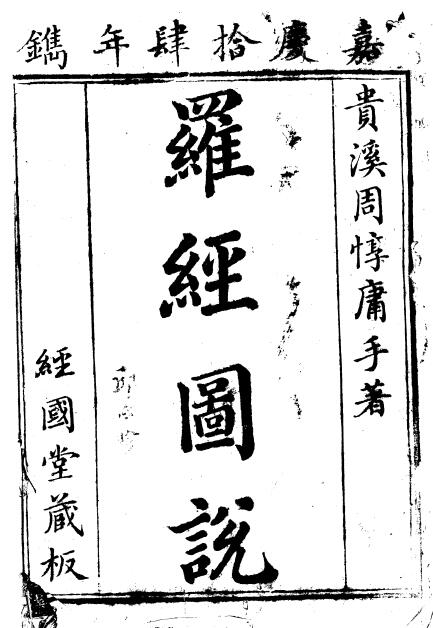 嘉慶拾肆年鐫
貴溪周惇庸手著
羅經圖說
經國堂藏板